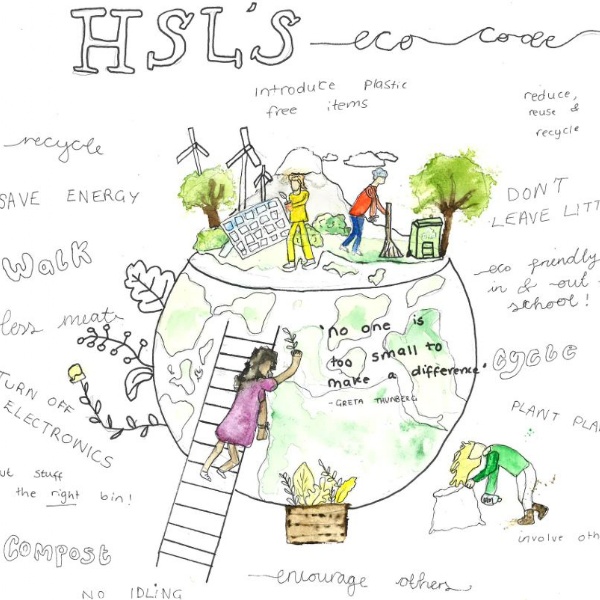 HSL'S eco code
introduce plastic
free items
reduce,
reuse &
recycle
recycle
SAVE ENERGY
DON'T
LEAVE LITT
Walk
eco friendly
in & out of
school!
less meat
'no one is
too small to
make a difference'
- GRETA THUNBERG
cycle
TURN OFF
ELECTRONICS
PLANT PLA
ut stuff
the right bin!
COMPOST
involve oth
encourage others
NO IDLING